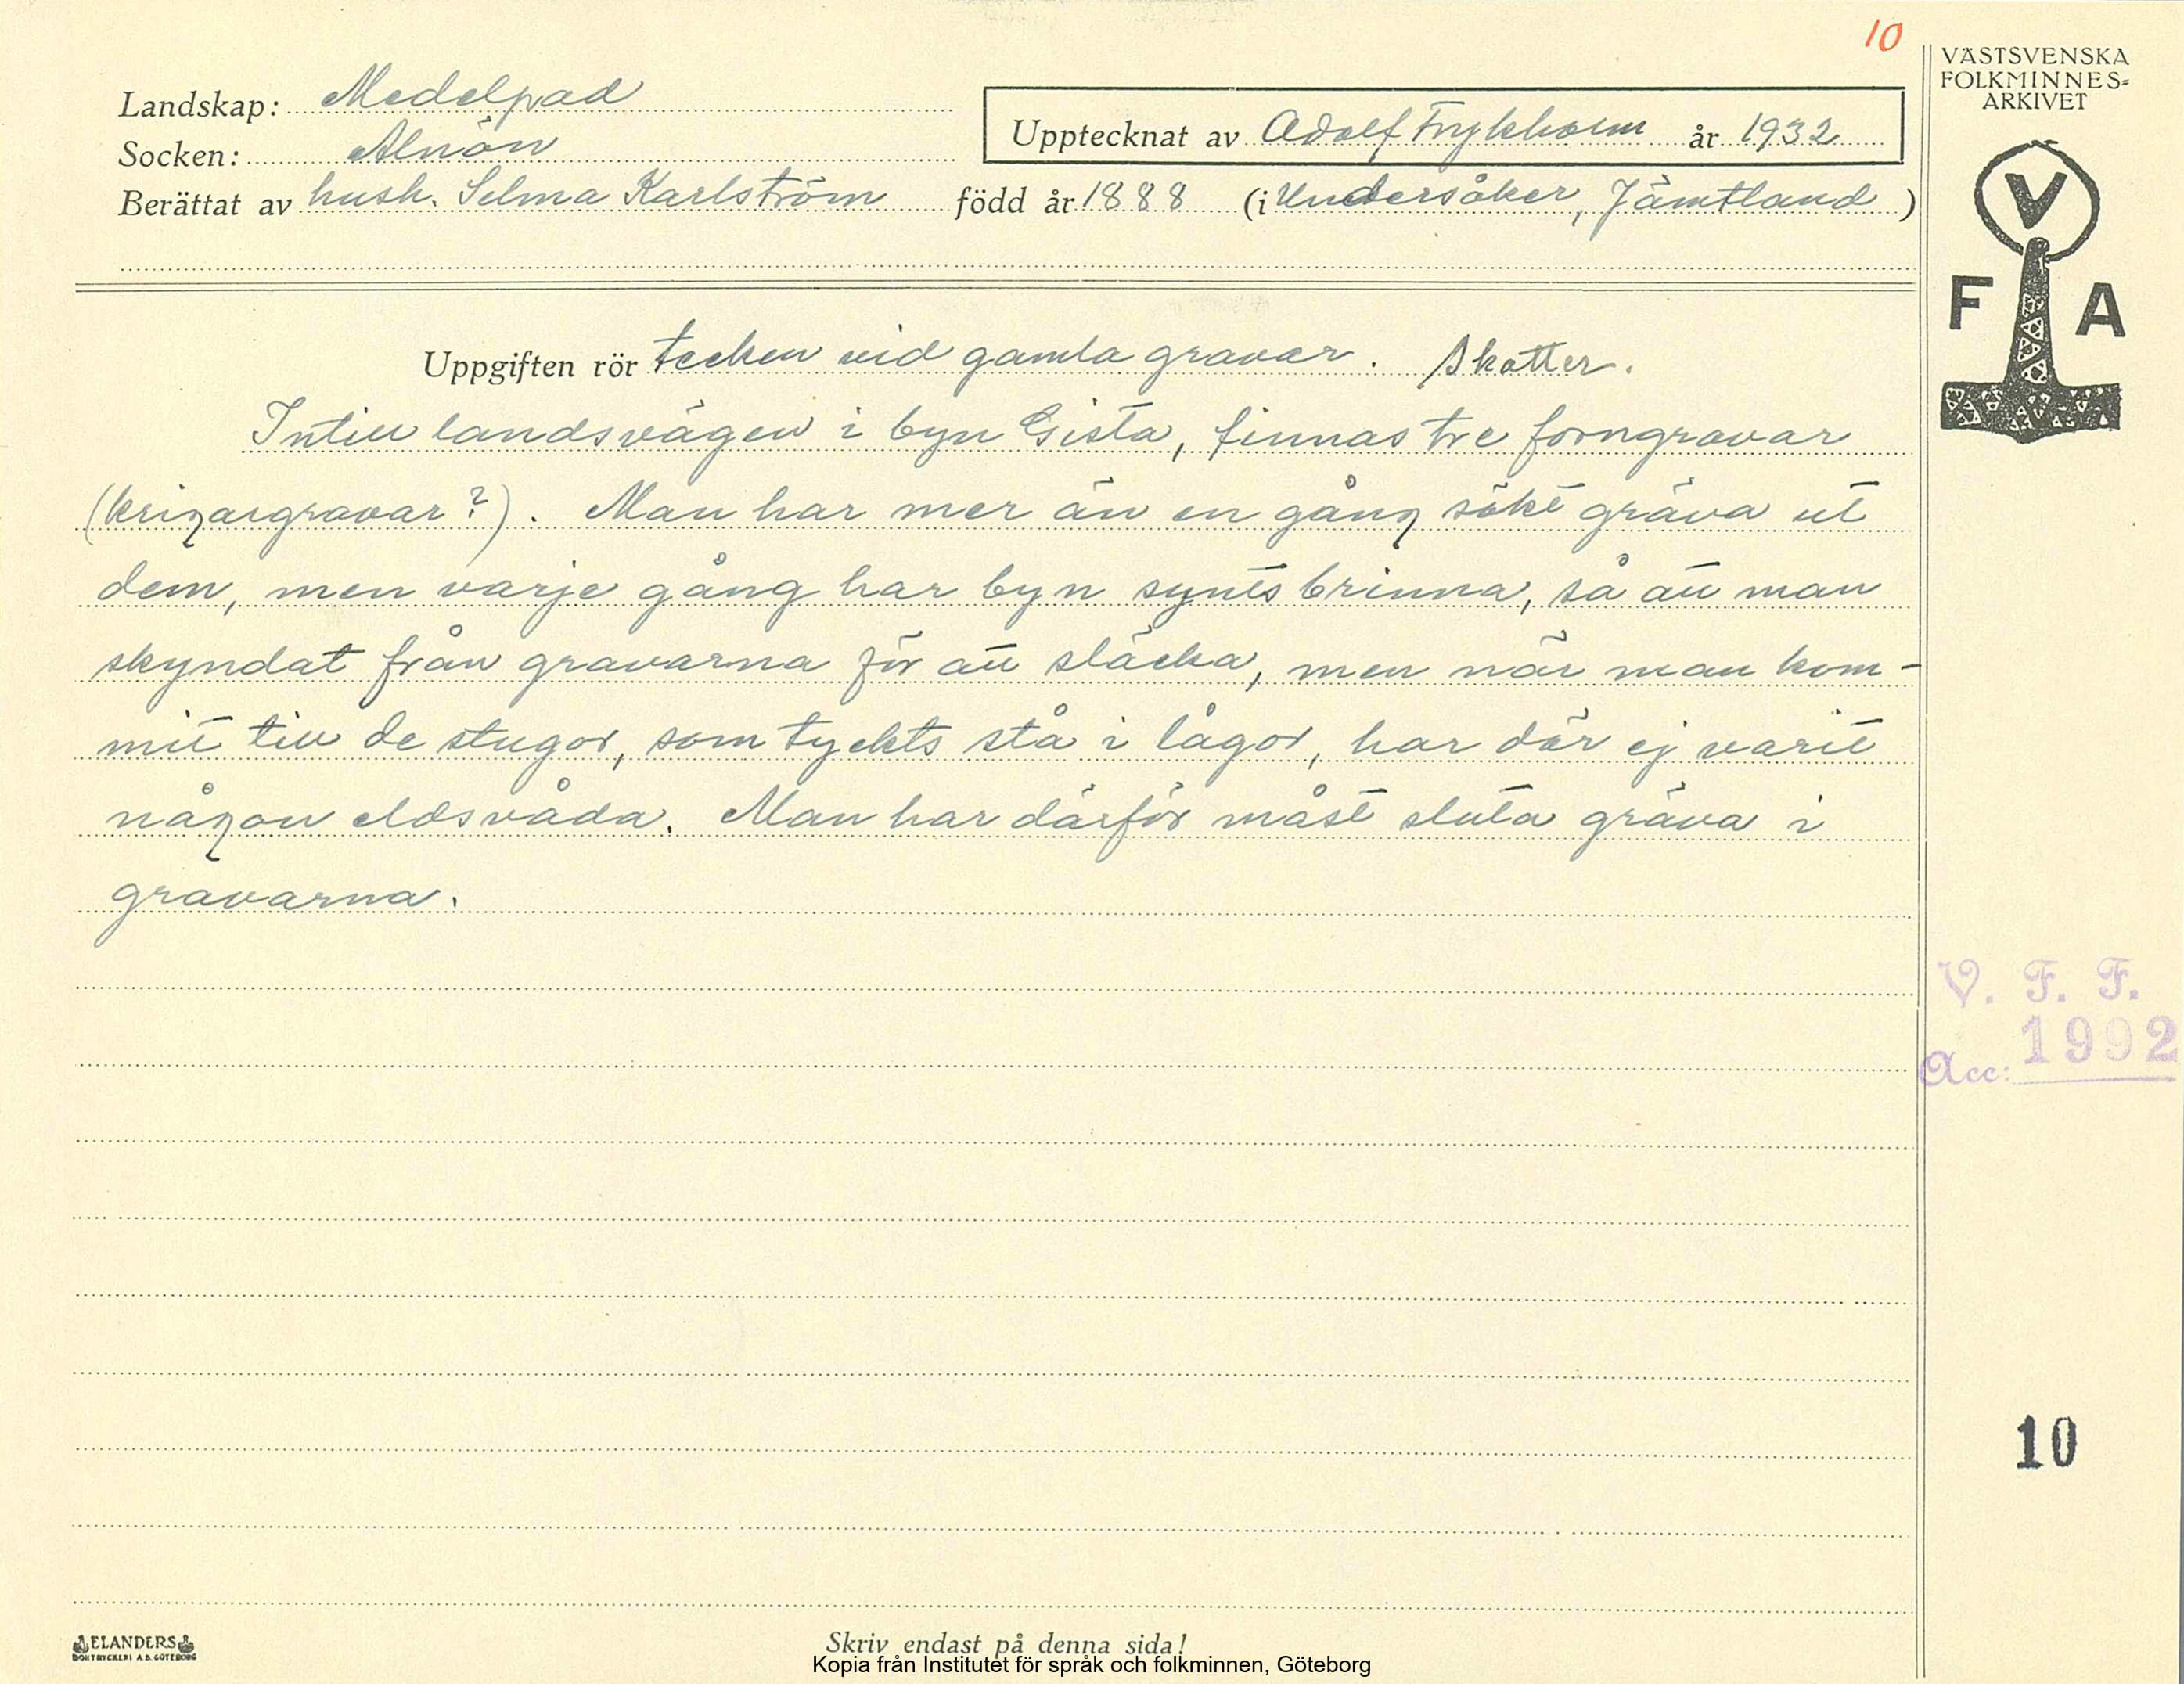 10
VÄSTSVENSKA
FOLKMINNES=
ARKIVET
V
F A
Landskap: Medelpad
Socken: Alnön
Upptecknat av Adolf Frykholm år 1932
Berättat av hush. Selma Karlström född år 1888 (i Undersåker, Jämtland)
Uppgiften rör tecken vid gamla gravar. Skatter.
Intill landsvägen i byn Gista, finnas tre forngravar
(krigargravar?). Man har mer än en gång sökt gräva ut
dem, men varje gång har byn synts brinna, så att man
skyndat från gravarna för att släcka, men när man kom-
mit till de stugor, som tyckts stå i lågor, har där ej varit
någon eldsvåda. Man har därför måst sluta gräva i
gravarna.
V. F. F.
Acc: 1992
10
ELANDERS
BOKTRYCKERI A.B. GÖTEBORG
Skriv endast på denna sida!
Kopia från Institutet för språk och folkminnen, Göteborg